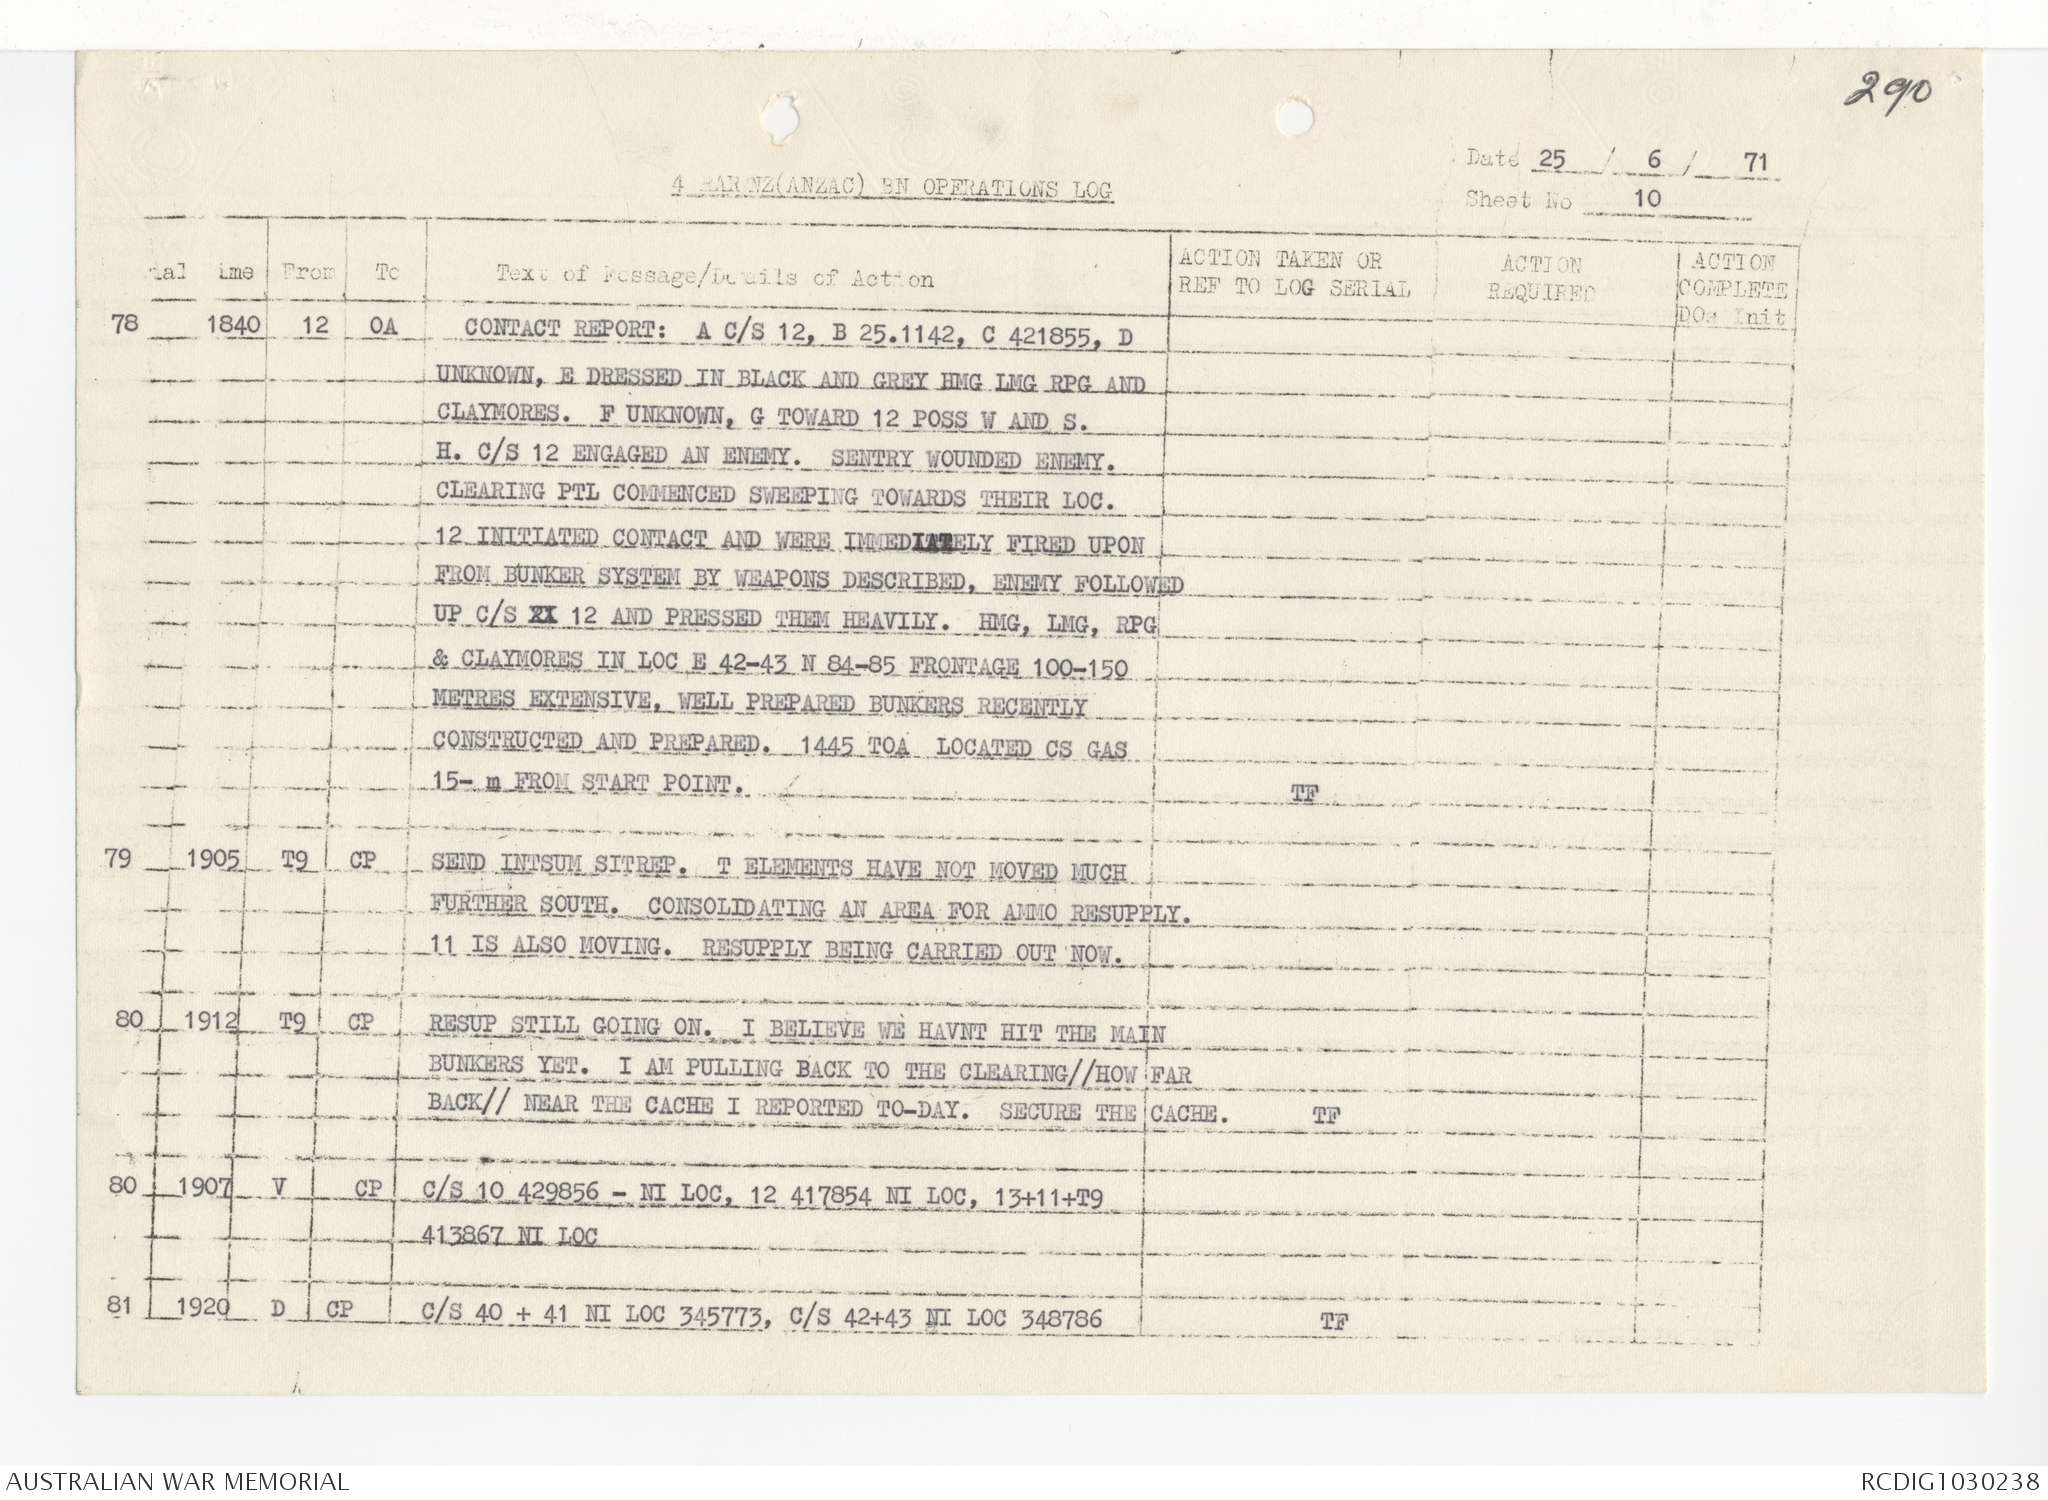 290
Date 25 / 6 / 71
4 RAR/NZ(ANZAC) BN OPERATIONS LOG
Sheet No 10
ial ime From To Text of Message/Details of Action ACTION TAKEN OR REF TO LOG SERIAL ACTION REQUIRED ACTION COMPLETE DOs Init
78 1840 12 OA CONTACT REPORT: A C/S 12, B 25.1142, C 421855, D
UNKNOWN, E DRESSED IN BLACK AND GREY HMG LMG RPG AND
CLAYMORES. F UNKNOWN, G TOWARD 12 POSS W AND S.
H. C/S 12 ENGAGED AN ENEMY. SENTRY WOUNDED ENEMY.
CLEARING PTL COMMENCED SWEEPING TOWARDS THEIR LOC.
12 INITIATED CONTACT AND WERE IMMEDIATELY FIRED UPON
FROM BUNKER SYSTEM BY WEAPONS DESCRIBED, ENEMY FOLLOWED
UP C/S 12 AND PRESSED THEM HEAVILY. HMG, LMG, RPG
& CLAYMORES IN LOC E 42-43 N 84-85 FRONTAGE 100-150
METRES EXTENSIVE, WELL PREPARED BUNKERS RECENTLY
CONSTRUCTED AND PREPARED. 1445 TOA LOCATED CS GAS
15- m FROM START POINT. TF
79 1905 T9 CP SEND INTSUM SITREP. T ELEMENTS HAVE NOT MOVED MUCH
FURTHER SOUTH. CONSOLIDATING AN AREA FOR AMMO RESUPPLY.
11 IS ALSO MOVING. RESUPPLY BEING CARRIED OUT NOW.
80 1912 T9 CP RESUP STILL GOING ON. I BELIEVE WE HAVNT HIT THE MAIN
BUNKERS YET. I AM PULLING BACK TO THE CLEARING//HOW FAR
BACK// NEAR THE CACHE I REPORTED TO-DAY. SECURE THE CACHE. TF
80 1907 V CP C/S 10 429856 - NI LOC, 12 417854 NI LOC, 13+11+T9
413867 NI LOC
81 1920 D CP C/S 40 + 41 NI LOC 345773, C/S 42+43 NI LOC 348786 TF
AUSTRALIAN WAR MEMORIAL
RCDIG1030238